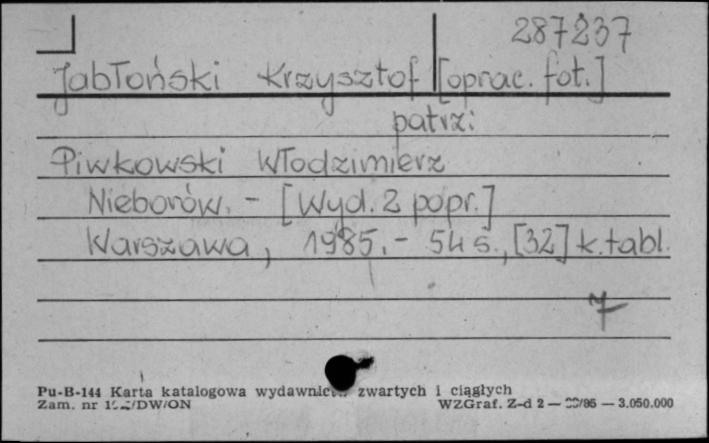 287237
Jabłoński Krzysztof [oprac. fot.]
patrz:
Piwkowski Włodzimierz
Nieborów. - [Wyd. 2 popr.]
Warszawa, 1985. - 54 s., [32] k. tabl.
7
Pu-B-144 Karta katalogowa wydawnictw zwartych i ciągłych
Zam. nr /DW/ON WZGraf. Z-d 2 — /85 — 3.050.000